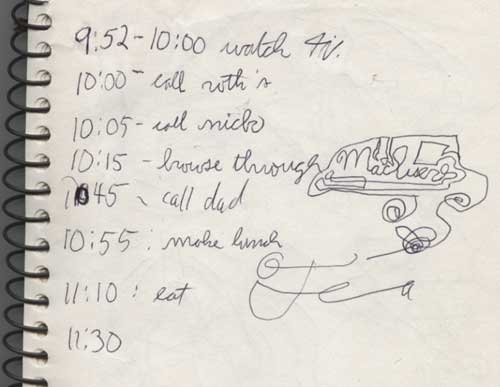 9:52-10:00 watch T.V.
10:00 - call roth's
10:05 - call
10:15 - browse through MacUser
10:45 - call dad
10:55 : make lunch
11:10 : eat
11:30